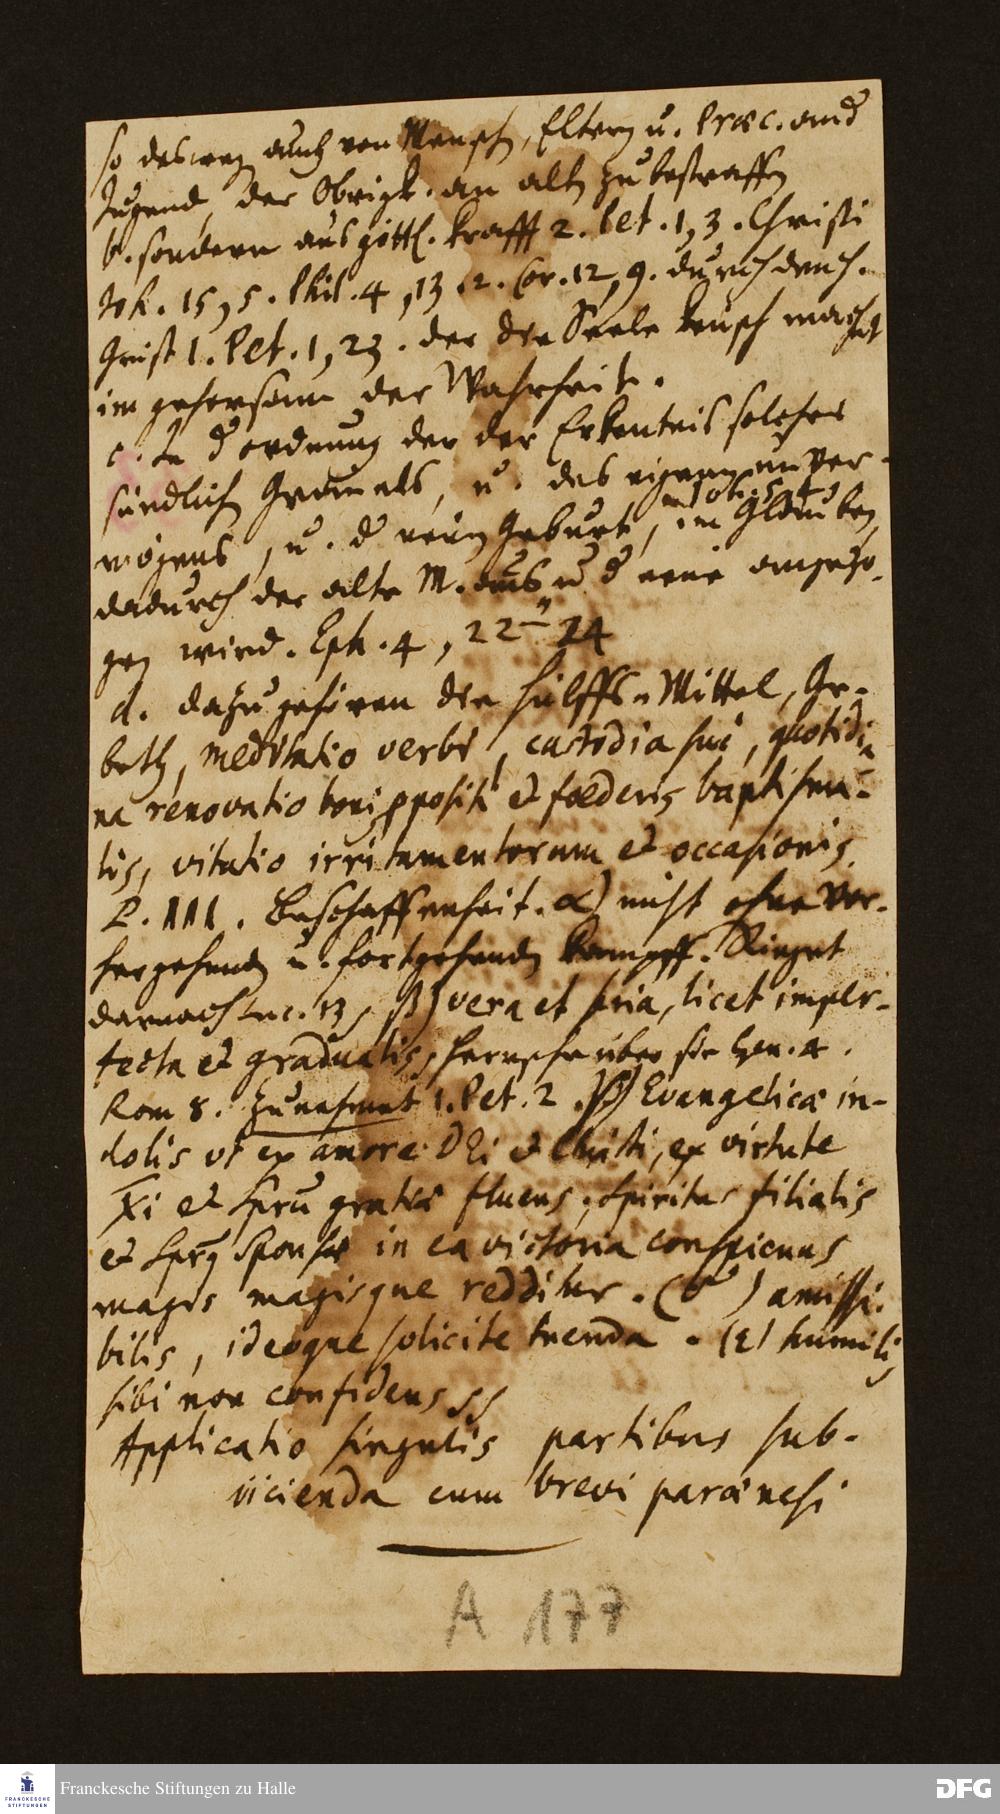 so deswegen auch von Mensch, Eltern u. Præc. an d
Jugend, der Obrigk. an alten zu bestraffen
b. sondern aus göttl. krafft 2. Pet. 1, 3. Christi
Joh. 15, 5. Phil. 4, 13. 2. Cor. 12, 9. durch den h.
Geist 1. Pet. 1, 23. der die Seele keusch machet
im gehorsam der Wahrheit.
c. In d ordnung der Erkentnis solches
sündlichen Greuels, u. des eigenen unver-
mögens, u. d neuen Geburt, im Glauben,
1 Joh. 5, 4
dadurch der alte M. aus u d neue angezo-
gen wird. Eph. 4, 22-24
d. dazu gehören die hülffs-Mittel, Ge-
beth, meditatio verbi, custodia sui, quotidia
na renovatio boni ppositi et foederis baptisma-
lis, vitatio irritamentorum et occasionis.
P. III. Beschaffenheit. α) nicht ohne vor-
hergehenden u. fortgehenden kampff. Ringet
darnach Luc. 13, β) vera et seria, licet imper-
fecta et gradualis, herrsche über sie Gen. 4.
Rom 8. zunehmet 1. Pet. 2. γ) Evangelicæ in-
dolis ut ex amore DEi et Christi, ex virtute
Xi et Spiru gratiæ fluens, Spiritus filialis
et Sprq Sponsæ in ea victoria conspicuus
magis magisque redditur. (δ) amissi-
bilis, ideoque solicite tuenda. (ε) humilis,
sibi non confidens ss
Applicatio singulis partibus sub-
iicienda cum brevi parænesi
A 177
FRANCKESCHE
STIFTUNGEN
Franckesche Stiftungen zu Halle
DFG